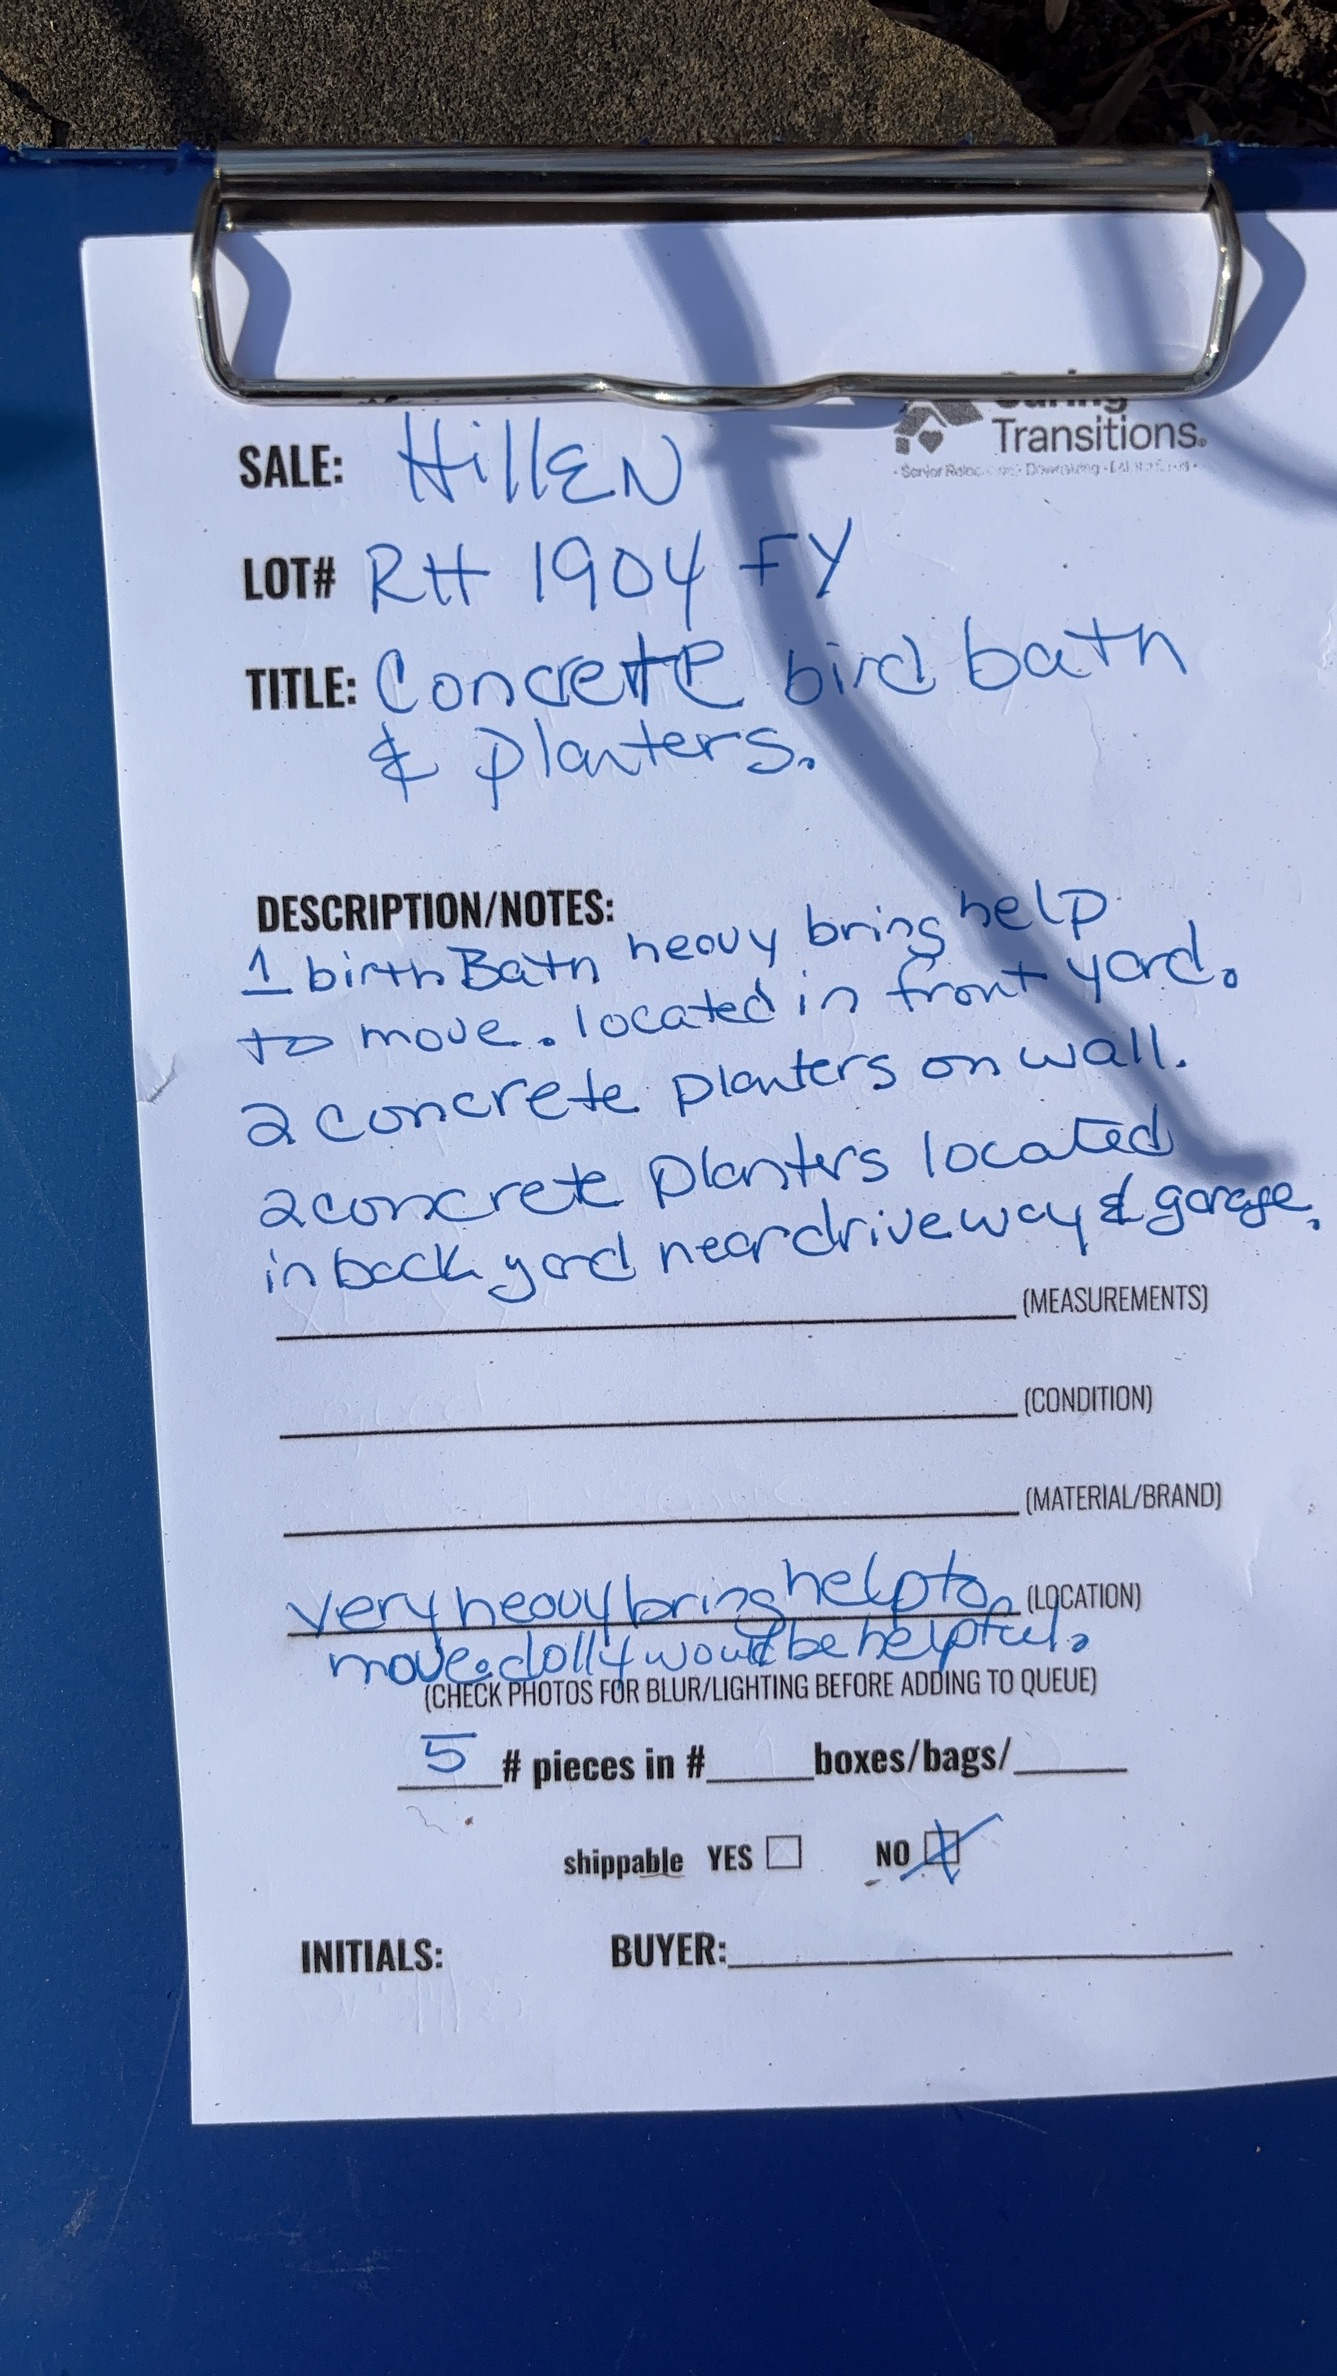 Transitions.
SALE: HillEN
LOT# RH 1904 FY
TITLE: Concrete bird bath
& planters.
DESCRIPTION/NOTES:
1 birth Bath heavy bring help
to move. located in front yard.
2 concrete planters on wall.
2 concrete planters located
in back yard near driveway & garage.
(MEASUREMENTS)
(CONDITION)
(MATERIAL/BRAND)
very heavy bring help to (LOCATION)
move. dolly would be helpful.
(CHECK PHOTOS FOR BLUR/LIGHTING BEFORE ADDING TO QUEUE)
5 # pieces in # boxes/bags/
shippable YES NO
INITIALS: BUYER: